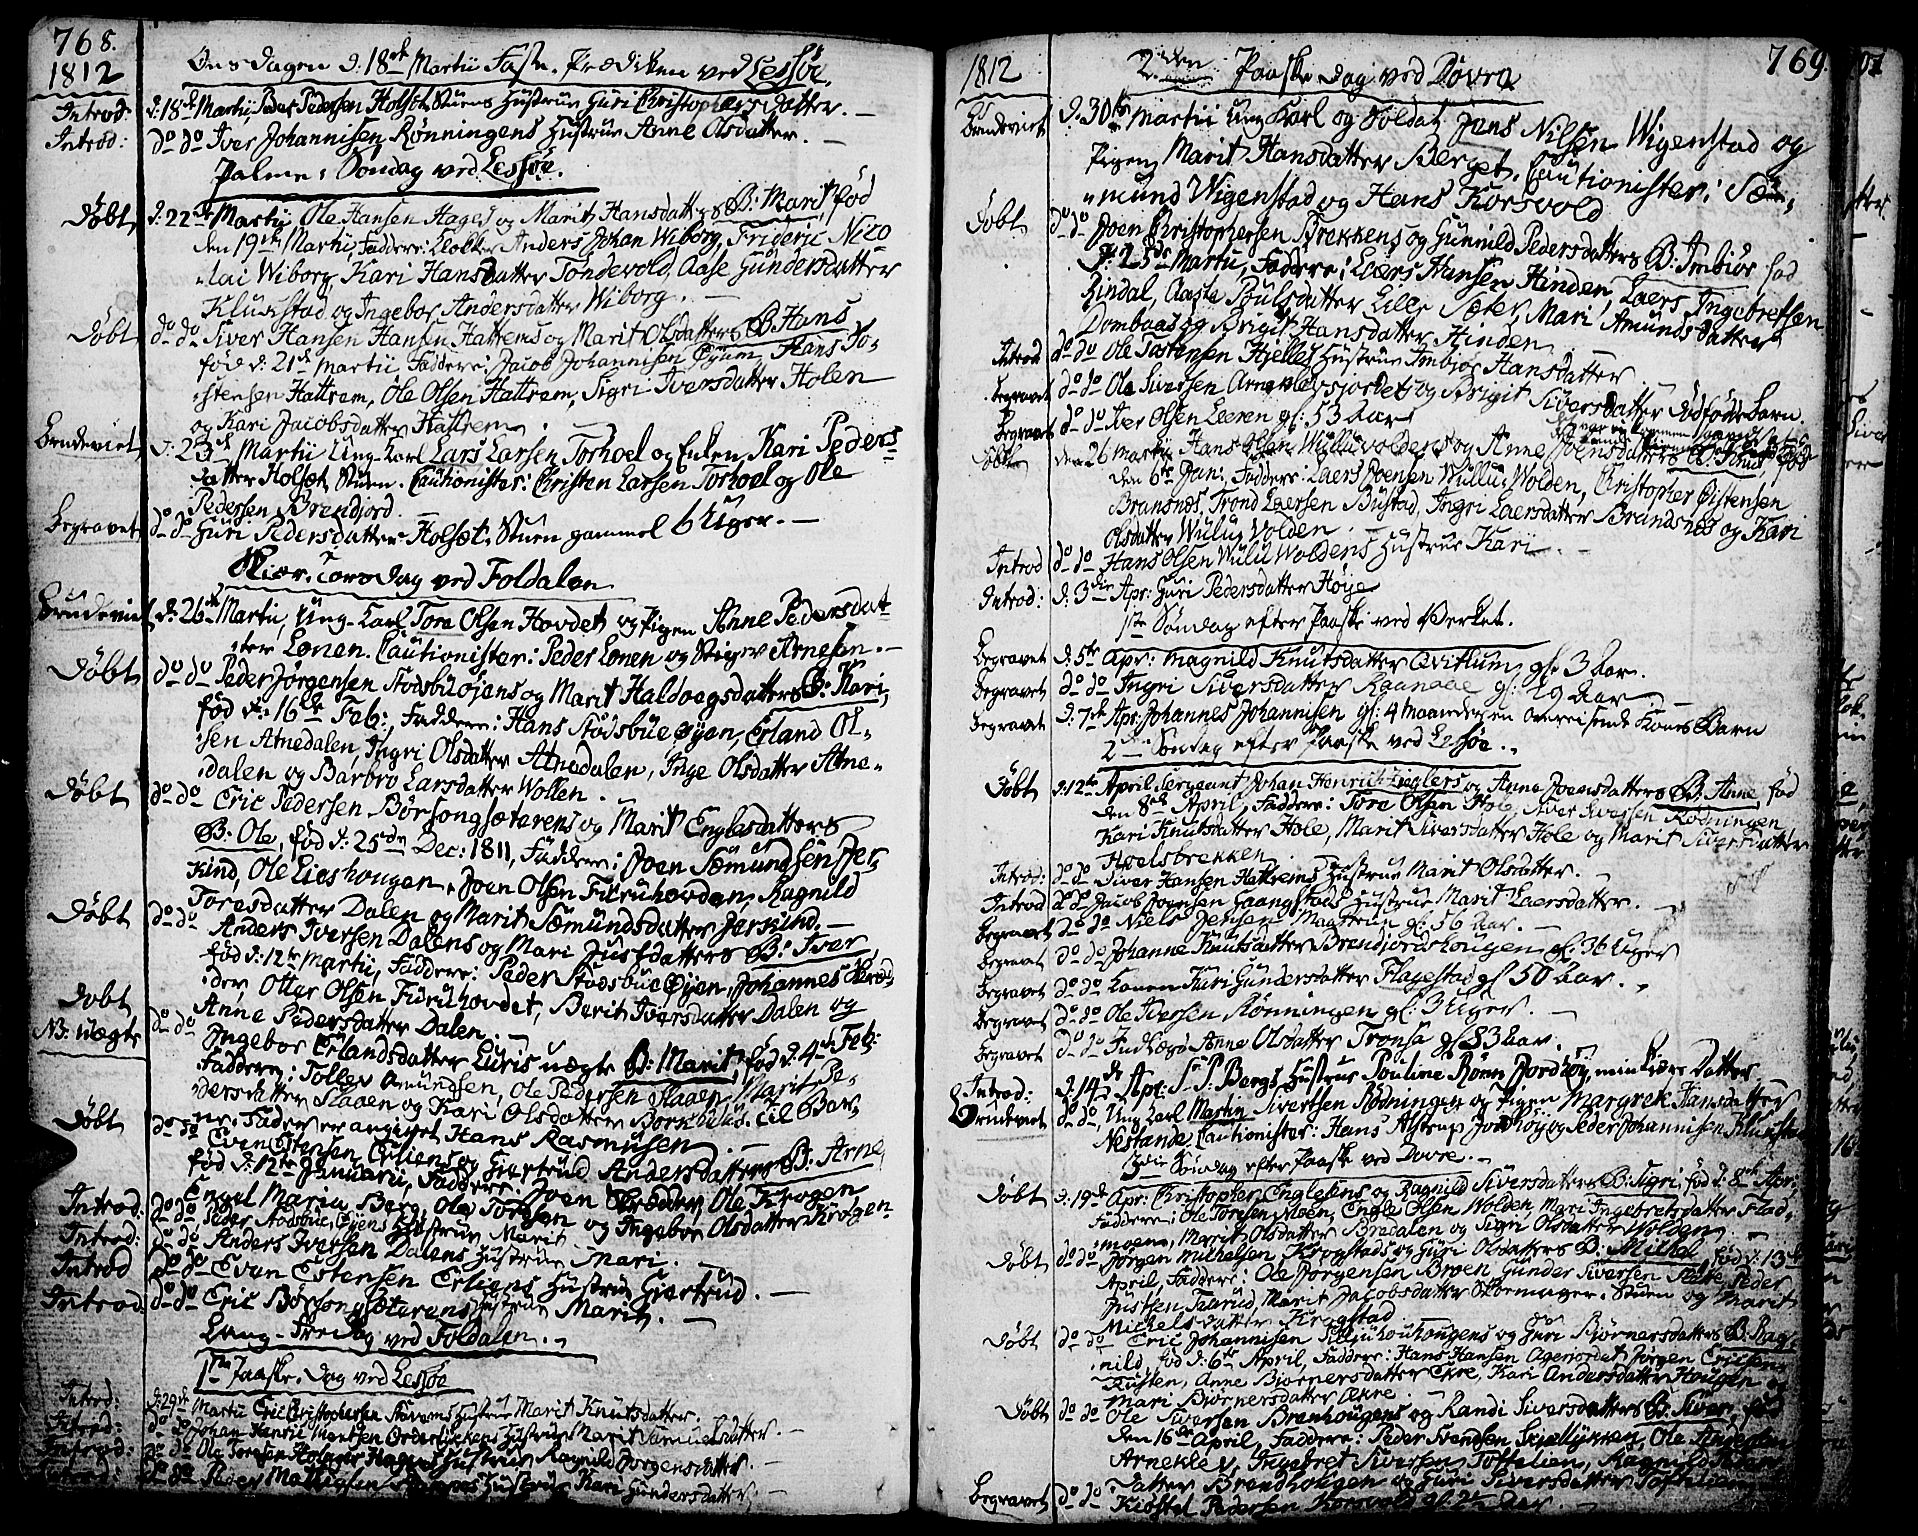 768.
1812
Onsdagen d: 18de Martii Faste-Prædiken ved Lessøe.
Introd: d: 18de Martii Peder Pedersen Holset Stuens Hustrue Guri Christophersdatter. —
Introd: do do Iver Johannisen Rønningens Hustrue Anne Olsdatter. —
Palme-Søndag ved Lessøe.
Døbt d: 22de Martii Ole Hansen Hages og Marit Hansdatters B: Marit, fød
den 19de Martii, Faddere: Klokker Anders Johan Wiborg, Frideric Nico
lai Wiborg, Kari Hansdatter Tøndevold, Aase Gundersdatter
Klukstad og Ingebor Andersdatter Wiborg. —
Døbt do do Siver Hansen Hansen Hattrems og Marit Olsdatters B. Hans
fød d: 21de Martii Faddere: Jacob Johannisen Øyum, Hans To-
stensen Hattrem, Ole Olsen Hattrem, Sigri Iversdatter Holen
og Kari Jacobsdatter Hattrem. —
Brudeviet d: 23de Martii Ung-Karl Lars Larsen Torhoel og Enken Kari Peders
datter Holset Stuen. Cautionister: Christen Larsen Torhoel og Ole
Pedersen Brendjord.
Begravet do do Guri Pedersdatter Holset-Stuen gammel 6 Uger. —
Skiær-Torsdag ved Foldalen
Brudeviet d: 26de Martii, Ung-Karl Tore Olsen Hovdet og Pigen Anne Pedersdat
ter Lonen. Cautionister: Peder Lonen og Stiger Arnesen. —
Døbt do do Peder Jørgensen Stodsbuøjens og Marit Haldvogsdatters B: Kari,
fød d: 16de Feb:, Faddere: Hans Stodsbue Øyen, Erland Ol-
sen Atnedalen, Ingri Olsdatter Atnedalen, Inge Olsdatter Atne-
dalen og Barbro Larsdatter Wollen.
Døbt do do Eric Pedersen Børsongsæterens og Marit Englesdatters
B: Ole, fød d: 25de Dec: 1811, Faddere: Joen Sæmundsen Jer-
kind, Ole Lieshougen, Joen Olsen Furuhovden, Ragnild
Toresdatter Dalen og Marit Sæmundsdatter Jerkind. —
Døbt do do Anders Iversen Dalens og Mari Jusfdatters B: Iver
fød d: 12te Martii, Faddere: Peder Stodsbue Øyen, Johannes
den, Otter Olsen Furuhovdet, Berit Iversdatter Dalen og
Anne Pedersdatter Dalen. —
Døbt do do Ingebor Erlandsdatter Luris uægte B: Marit, fød d: 4de Feb:
NB: uægte
Faddere: Tollev Amundsen, Ole Pedersen Slaaen, Marit Pe-
dersdatter Slaaen og Kari Olsdatter Borkhuus. Til Bar-
net Fader er angivet Hans Rasmusen
Døbt do do Even Estensen Erliens og Giertrud Andersdatters B: Arne,
fød d: 12te Januarii, Faddere Joen Ole Krogen
Engel Maria Berg, Ole Toresen og Ingebor Olsdatter Krogen
Introd: do do Peder Stodsbue Øyens Hustrue Marit
Introd: do do Anders Iversen Dalens Hustrue Mari. —
Introd do do Even Estensen Erliens Hustrue Giertrud. —
Introd do do Eric Børsongsæterens Hustrue Marit. —
Lang-Fredag ved Foldalen. —
1ste Paaske-Dag ved Lessøe
Introd: d: 29de Martii Eric Christophersen Stavems Hustrue Marit Knutsdatter.
Introd: do do Johan Hanric Hustrue Marit Samuelsdatter. —
Introd: do do Ole Toresen Hustrue Ragnild Jørgensdatter. —
Introd: do do Peder Mathisen Hustrue Kari Gundersdatter. —
769.
1812
2den Paaske Dag ved Dovra
Brudeviet d. 30te Martii Ung Karl og Soldat Jens Nilsen Wigenstad og
Pigen Marit Hansdatter Berget. Cautionister: Sæ-
mund Wigenstad og Hans Korsvold
Døbt do do Joen Christophersen Brekkens og Gunnild Pedersdatters B: Imbiør fød
d. 25de Martii, Faddere: Laers Hansen Hinden, Laers Ingebretsen
Lindal, Aaste Poulsdatter Lille Sæter, Mari Amundsdatter
Dombaas og Brigit Hansdatter Hinden
Introd do do Ole Tostensen Hjelles Hustrue Imbiør Hansdatter
Begravet do do Ole Siversen Arneklevsjordet og Brigit Siversdatter dødfødt Barn.
Begravet do do Iver Olsen Leeren gl: 53 Aar
Døbt den 26 Martii Hans Olsen Wulluvoldens og Anne Joensdatters fød
den 6te Jan: Faddere: Laers Joensen Wullu Wolden, Christopher Østensen
Bransnes, Trond Laersen Bustad, Ingri Laersdatter Brandsnes og Kari
Olsdatter Wulu Wolden
Introd do do Hans Olsen Wulu Woldens Hustrue Kari. —
Introd: d. 3die Apr: Guri Pedersdatter Høye
1ste Søndag efter Paaske ved Verket.
Begravet d: 5te Apr: Magnild Knutsdatter Qvitlum gl: 3 Aar.
Begravet do do Ingri Siversdatter Raanaae gl: 29 Aar
Begravet d. 7de Apr: Johannes Johannisen gl: 4 Maaneder en Omreisende Kones Barn
2den Søndag efter Paaske ved Lessøe. —
Døbt d. 12te April Sergeant Johan Henrich Zieglers og Anne Joensdatters B: Anne fød
den 8de April, Faddere: Tore Olsen Siver Siversen Rødningen
Kari Knutsdatter Hole, Marit Siversdatter Hole og Marit Siversdatter
Hoelsbrekken
Introd: do do Siver Hansen Hattrems Hustrue Marit Olsdatter. —
Introd do do Jacob Joensen Gaangstads Hustrue Marit Laersdatter. —
Begravet do do Niels Jensen Magtrim gl: 56 Aar. —
Begravet do do Johanne Knutsdatter Brendjordshougen gl: 36 Uger
Begravet do do Konen Kari Gundersdatter Flagestad gl 50 Aar.
Begravet do do Ole Iversen Rønningen gl: 3 Uger. —
Begravet do do Indlagd Anne Olsdatter Tronsa gl 83 Aar. —
Introd: d. 14de Apr: Sr P. Bergs Hustrue Pauline Rønn Jordhøj, min kiære Datter
Brudeviet do do, Ung Karl Martin Sivertsen Rødningen og Pigen Margrete Hansdatter
Nestande, Cautionister: Hans Alstrup Jordhøj og Peder Johannisen Klukstad
3die Søndag efter Paaske ved Dovre. —
Døbt d. 19de Apr: Christopher Englesens og Ragnild Siversdatters B: Sigri, fød d. 8de Apr:
Faddere: Ole Toresen Moen, Engle Olsen Wolden, Mari Ingebretsdatter Flad-
moen, Marit Olsdatter Bredalen og Sigri Olsdatter Wolden
Døbt do do Jørgen Michelsen Krogstads og Guri Olsdatters B: Michel, fød d. 13de
April, Faddere: Ole Jorgensen Broen, Gunder Siversen Peder
Justsen Taarud, Marit Jacobsdatter Skomager-Stuen og Marit
Michelsdatter Krogstad
Døbt do do Eric Johannisen og Guri Bjørnersdatters B. Rag-
nild, fød d: 6te April, Faddere: Hans Hansen Agerjordet, Jørgen Ericsen
Rusten, Anne Bjørnersdatter Ekre, Kari Andersdatter Hougen og
Mari Bjørnersdatter Ekre
Døbt do do Ole Siversen Brenhougens og Randi Siversdatters B: Siver, fød
den 16de April, Faddere: Peder Svendsen Skjellykken, Ole Andersen
Arneklev, Ingebret Siversen Toftelien, Ragnild
datter Brendhougen og Guri Siversdatter Toftelien
Begravet do do Kiøstel Pedersen Korsvold gl. Aar. —